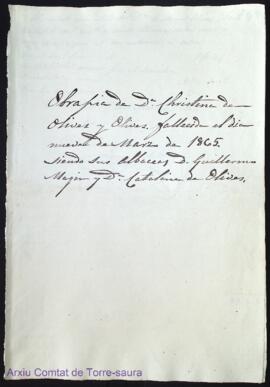 Obra pia de Dª Christina de
Olives y Olives. fallecida el dia
nueve de Marzo de 1865.
siendo sus albaceas D. Guillermo
y Dª Catalina de Olives.
Arxiu Comtat de Torre-saura